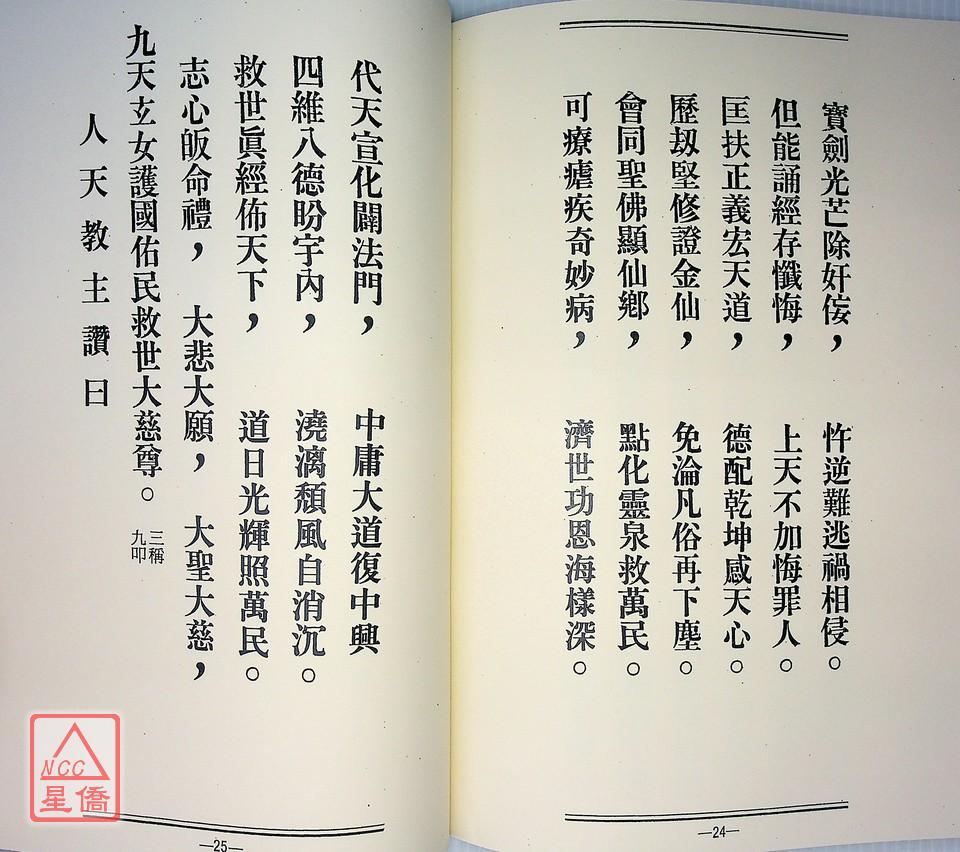 寶劍光芒除奸侫，　忤逆難逃禍相侵。
但能誦經存懺悔，　上天不加悔罪人。
匡扶正義宏天道，　德配乾坤感天心。
歷刼堅修證金仙，　免淪凡俗再下塵。
會同聖佛顯仙鄉，　點化靈泉救萬民。
可療瘧疾奇妙病，　濟世功恩海樣深。
—24—
代天宣化闢法門，　中庸大道復中興
四維八德盼宇內，　澆漓頹風自消沉。
救世眞經佈天下，　道日光輝照萬民。
志心皈命禮，　大悲大願，　大聖大慈，
九天玄女護國佑民救世大慈尊。三稱九叩
人天教主讚曰
—25—
NCC
星僑